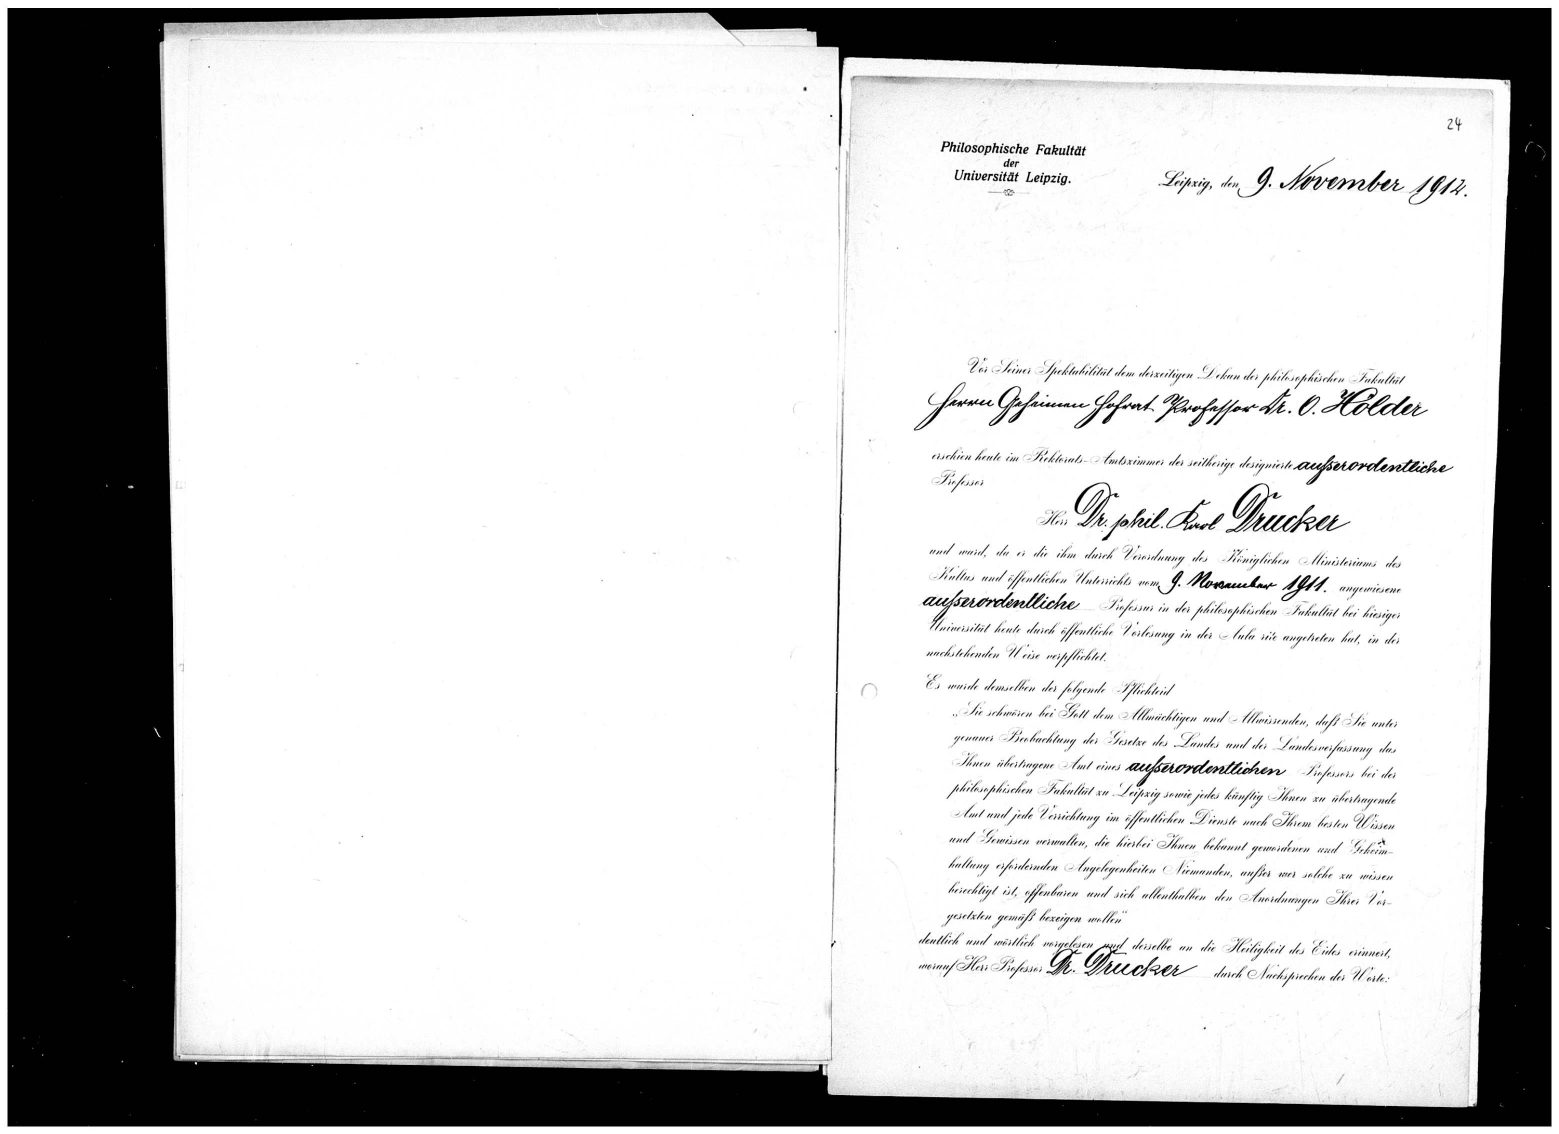 24
Philosophische Fakultät
der
Universität Leipzig.
Leipzig, den 9. November 1912.
Vor Seiner Spektabilität dem derzeitigen Dekan der philosophischen Fakultät
Herrn Geheimen Hofrat Professor Dr. O. Hölder
erschien heute im Rektorats-Amtszimmer der seitherige designierte außerordentliche
Professor
Herr Dr. phil. Karl Drucker
und ward, da er die ihm durch Verordnung des Königlichen Ministeriums des
Kultus und öffentlichen Unterrichts vom 9. November 1911. angewiesene
außerordentliche Professur in der philosophischen Fakultät bei hiesiger
Universität heute durch öffentliche Vorlesung in der Aula rite angetreten hat, in der
nachstehenden Weise verpflichtet.
Es wurde demselben der folgende Pflichteid
„Sie schwören bei Gott dem Allmächtigen und Allwissenden, daß Sie unter
genauer Beobachtung der Gesetze des Landes und der Landesverfassung das
Ihnen übertragene Amt eines außerordentlichen Professors bei der
philosophischen Fakultät zu Leipzig sowie jedes künftig Ihnen zu übertragende
Amt und jede Verrichtung im öffentlichen Dienste nach Ihrem besten Wissen
und Gewissen verwalten, die hierbei Ihnen bekannt gewordenen und Geheim-
haltung erfordernden Angelegenheiten Niemanden, außer wer solche zu wissen
berechtigt ist, offenbaren und sich allenthalben den Anordnungen Ihrer Vor-
gesetzten gemäß bezeigen wollen"
deutlich und wörtlich vorgelesen und derselbe an die Heiligkeit des Eides erinnert,
worauf Herr Professor Dr. Drucker durch Nachsprechen der Worte: